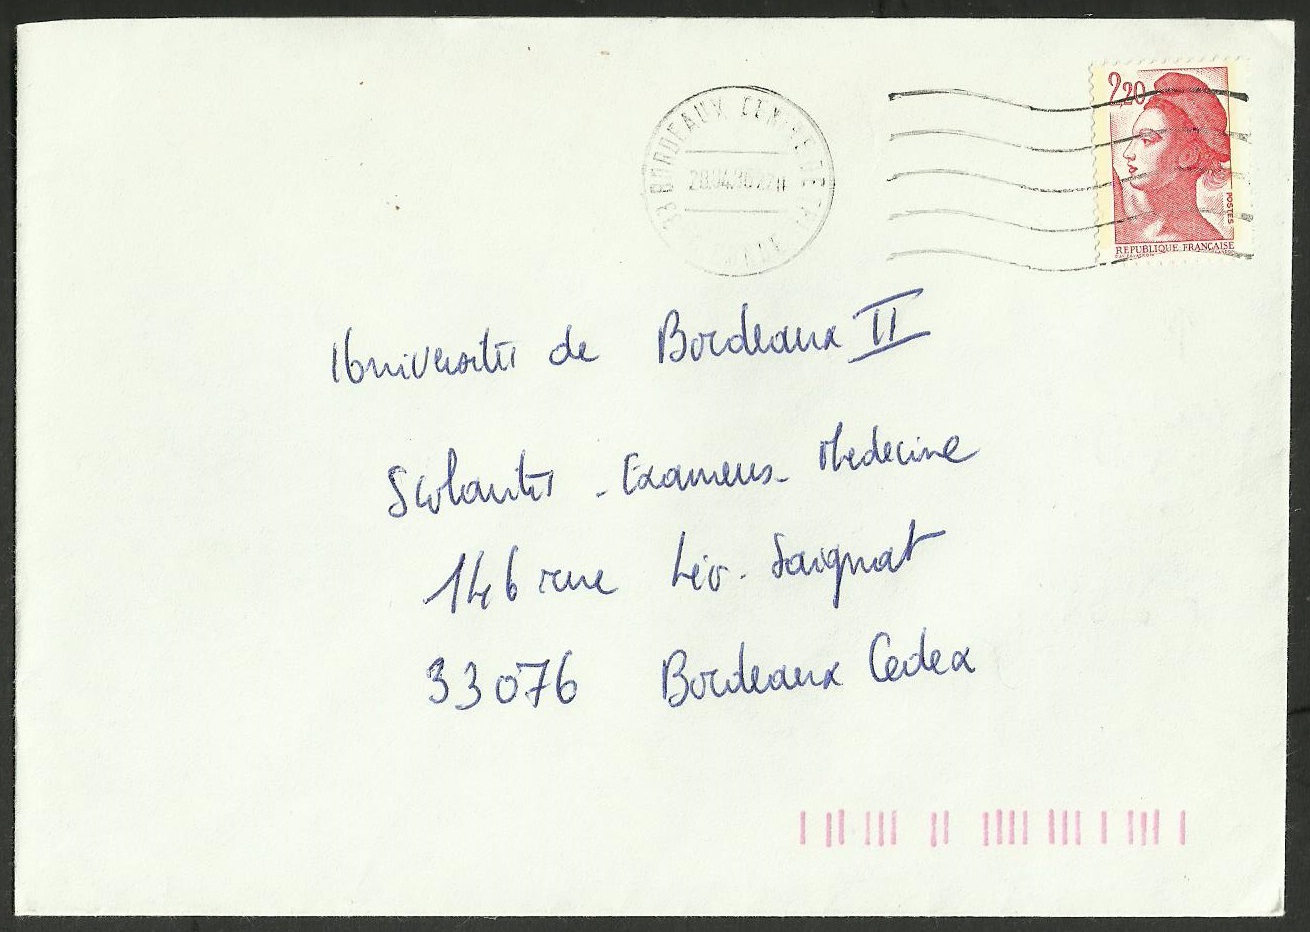 2,20
POSTES
REPUBLIQUE FRANÇAISE
33 BORDEAUX CENTRE DE TRI
GIRONDE
Université de Bordeaux II
Scolarité - Examens - Médecine
146 rue Léo-Saignat
33076 Bordeaux Cedex